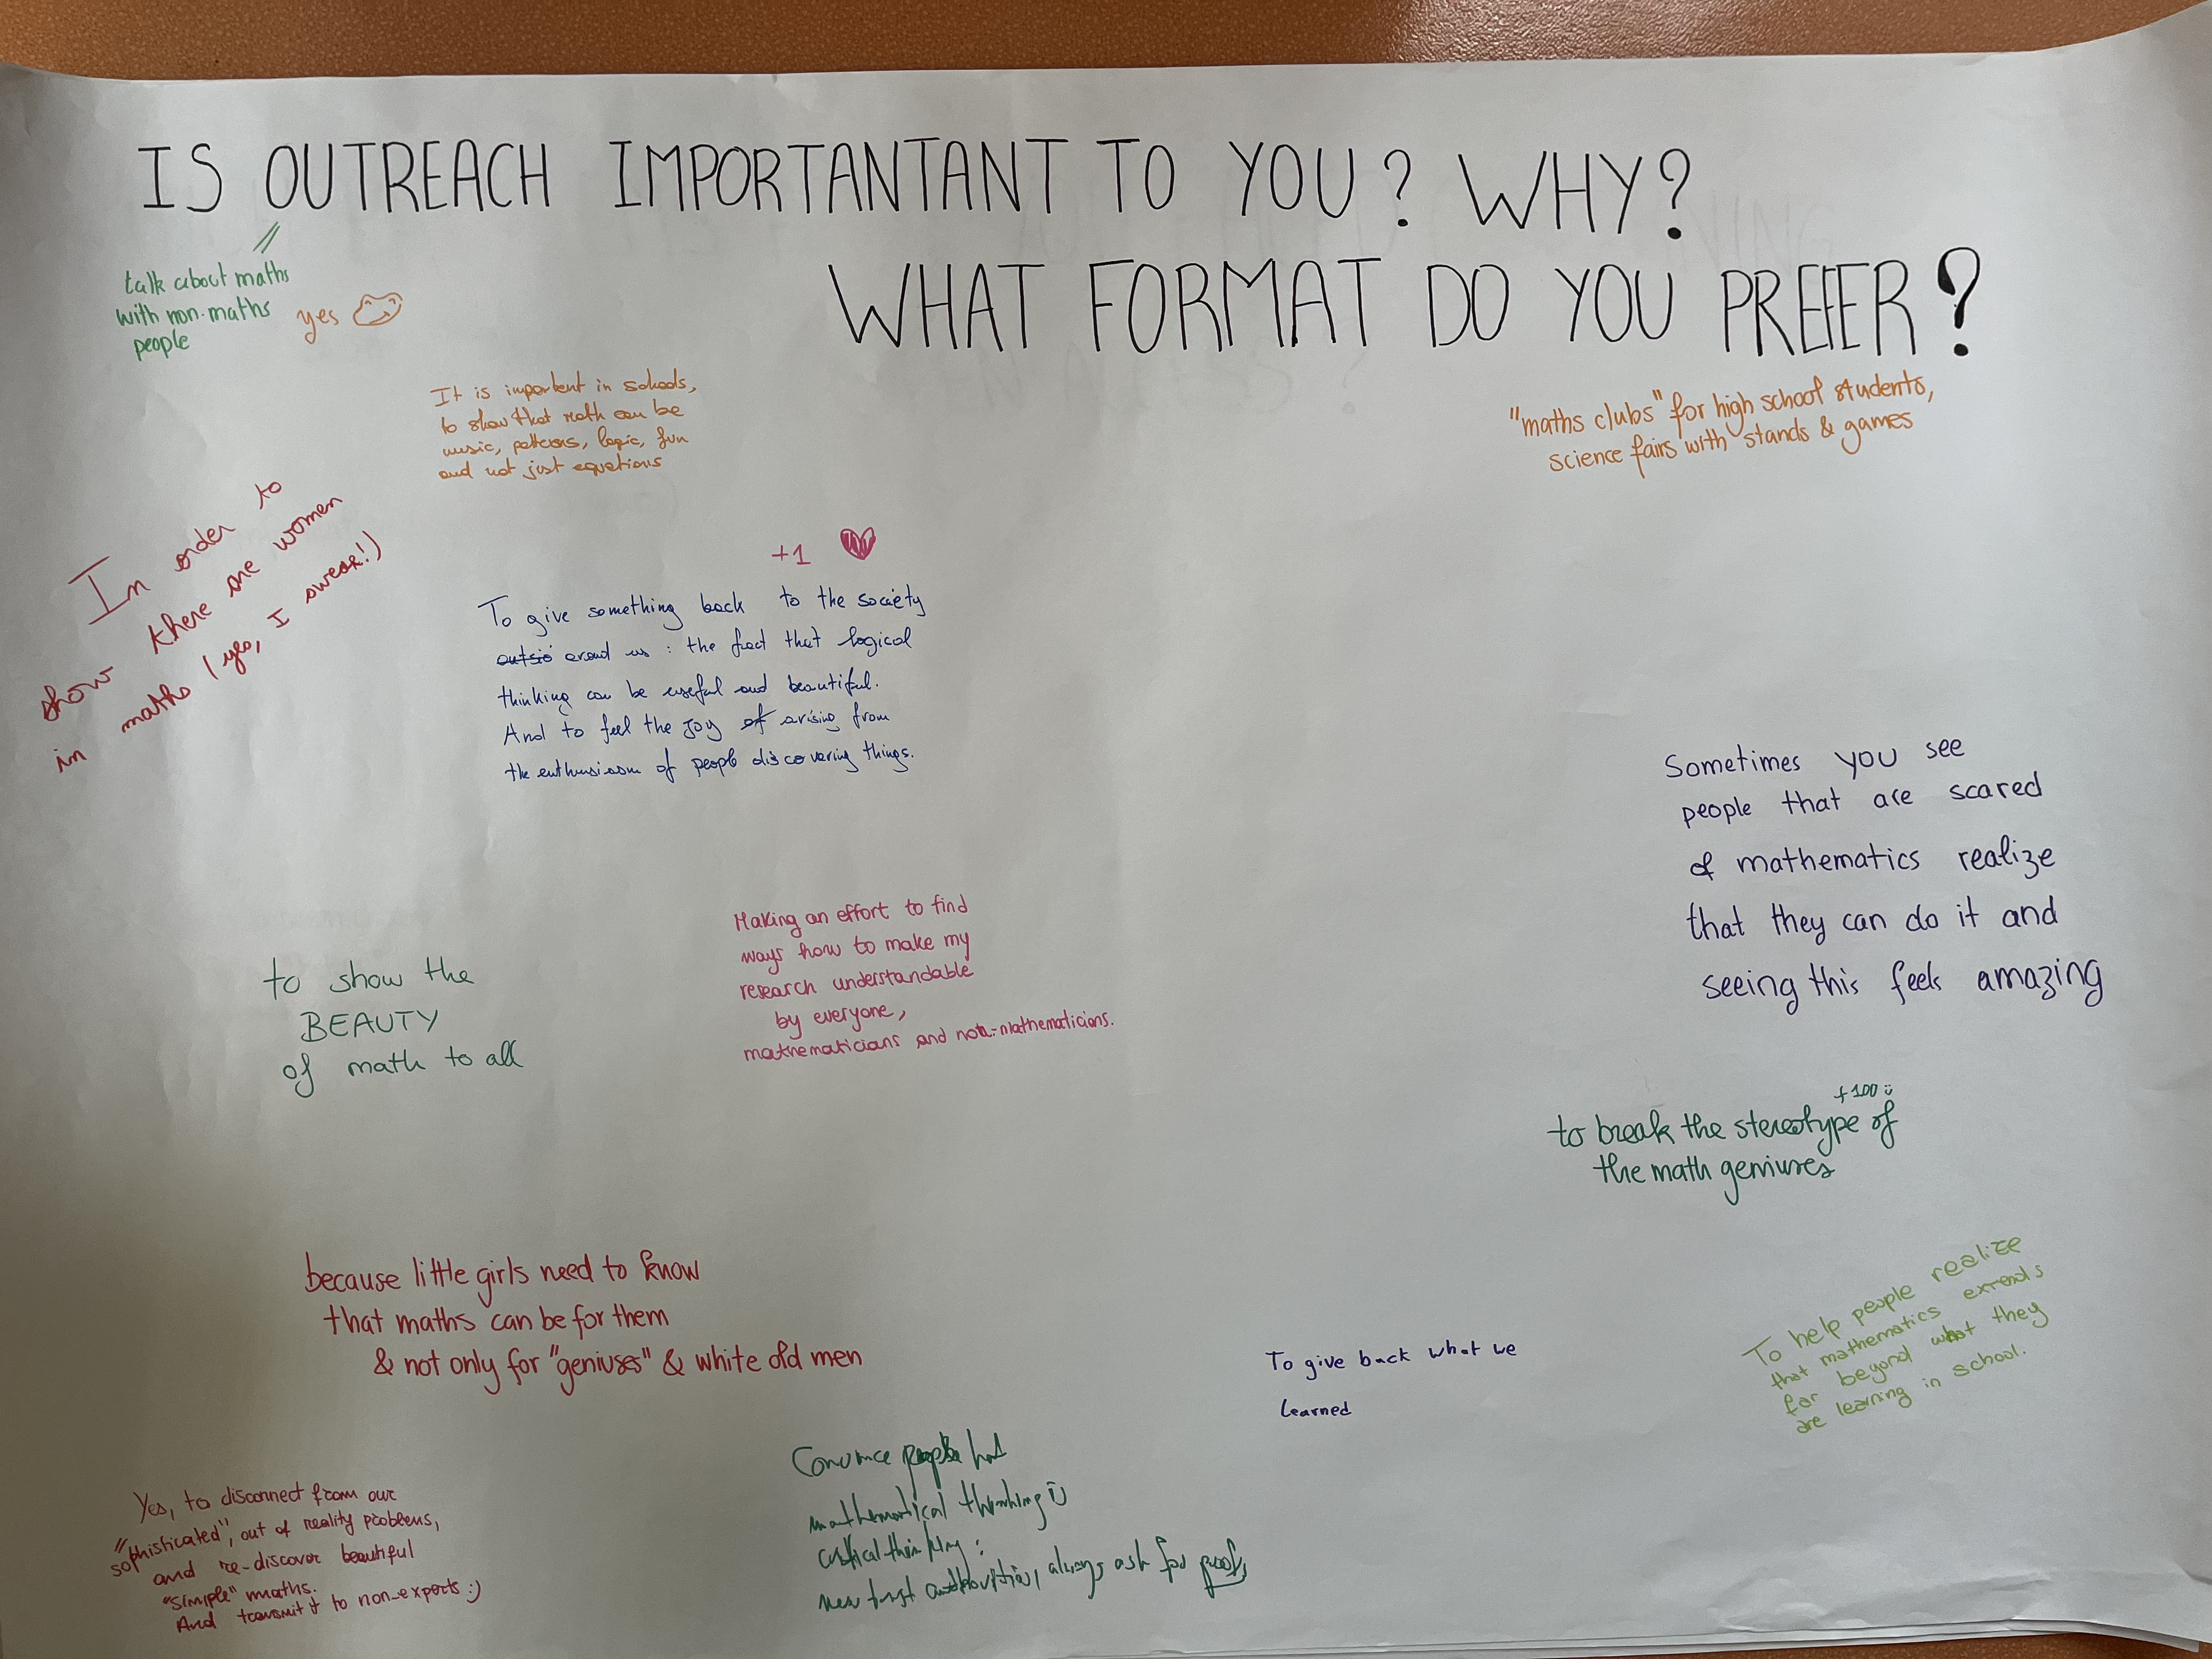 IS OUTREACH IMPORTANTANT TO YOU? WHY?
WHAT FORMAT DO YOU PREFER?
talk about maths
with non-maths
people
yes
It is important in schools,
to show that math can be
music, patterns, logic, fun
and not just equations
"maths clubs" for high school students,
science fairs with stands & games
In order to
show there are women
in maths (yes, I swear!)
+1
To give something back to the society
outsid around us: the fact that logical
thinking can be useful and beautiful.
And to feel the joy of arising from
the enthusiasm of people discovering things.
Sometimes you see
people that are scared
of mathematics realize
that they can do it and
seeing this feels amazing
Making an effort to find
ways how to make my
research understandable
by everyone,
mathematicians and non-mathematicians.
to show the
BEAUTY
of math to all
+100 :)
to break the stereotype of
the math geniuses
because little girls need to know
that maths can be for them
& not only for "geniuses" & white old men
To give back what we
learned
To help people realize
that mathematics extends
far beyond what they
are learning in school.
Yes, to disconnect from our
"sophisticated", out of reality problems,
and re-discover beautiful
"simple" maths.
And transmit it to non-experts :)
Convince people that
mathematical thinking is
critical thinking:
never trust authorities, always ask for proofs